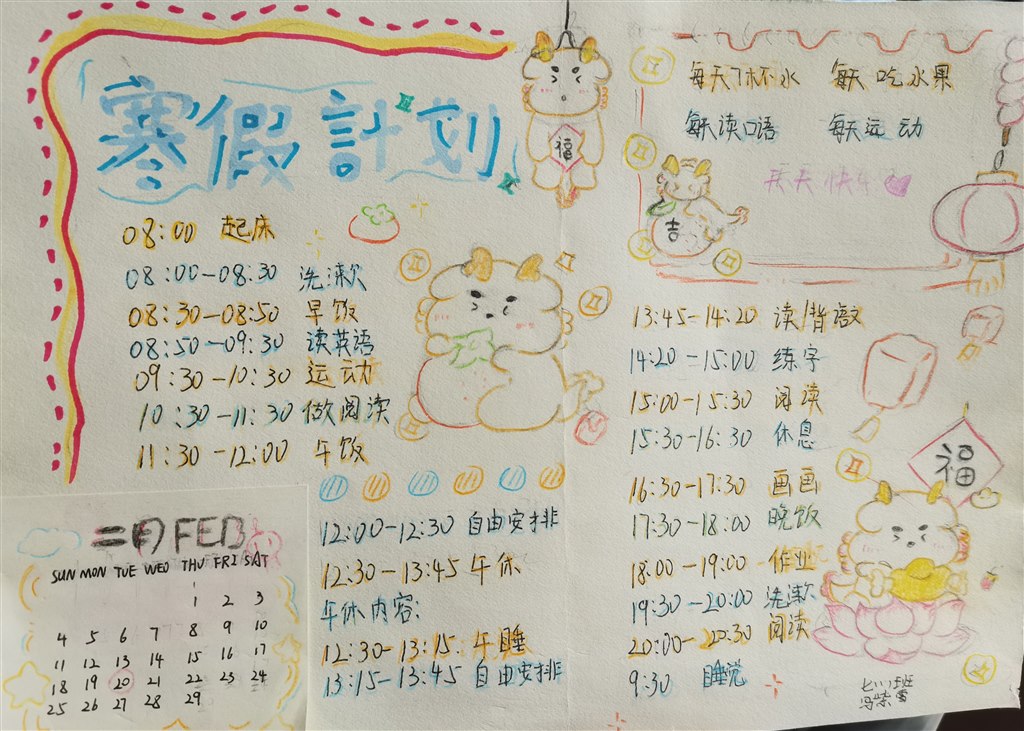 寒假計划
08:00 起床
08:00-08:30 洗漱
08:30-08:50 早饭
08:50-09:30 读英语
09:30-10:30 运动
10:30-11:30 做阅读
11:30-12:00 午饭
二月 FEB
SUN MON TUE WED THU FRI SAT
1 2 3
4 5 6 7 8 9 10
11 12 13 14 15 16 17
18 19 20 21 22 23 24
25 26 27 28 29
12:00-12:30 自由安排
12:30-13:45 午休
午休内容:
12:30-13:15 午睡
13:15-13:45 自由安排
福
每天 水 每天吃水果
每天读口语 每天运动
天天快
吉
13:45-14:20 读/背
14:20-15:00 练字
15:00-15:30 阅读
15:30-16:30 休息
16:30-17:30 画画
17:30-18:00 晚饭
18:00-19:00 作业
19:30-20:00 洗漱
20:00-20:30 阅读
9:30 睡觉
福
班
冯紫